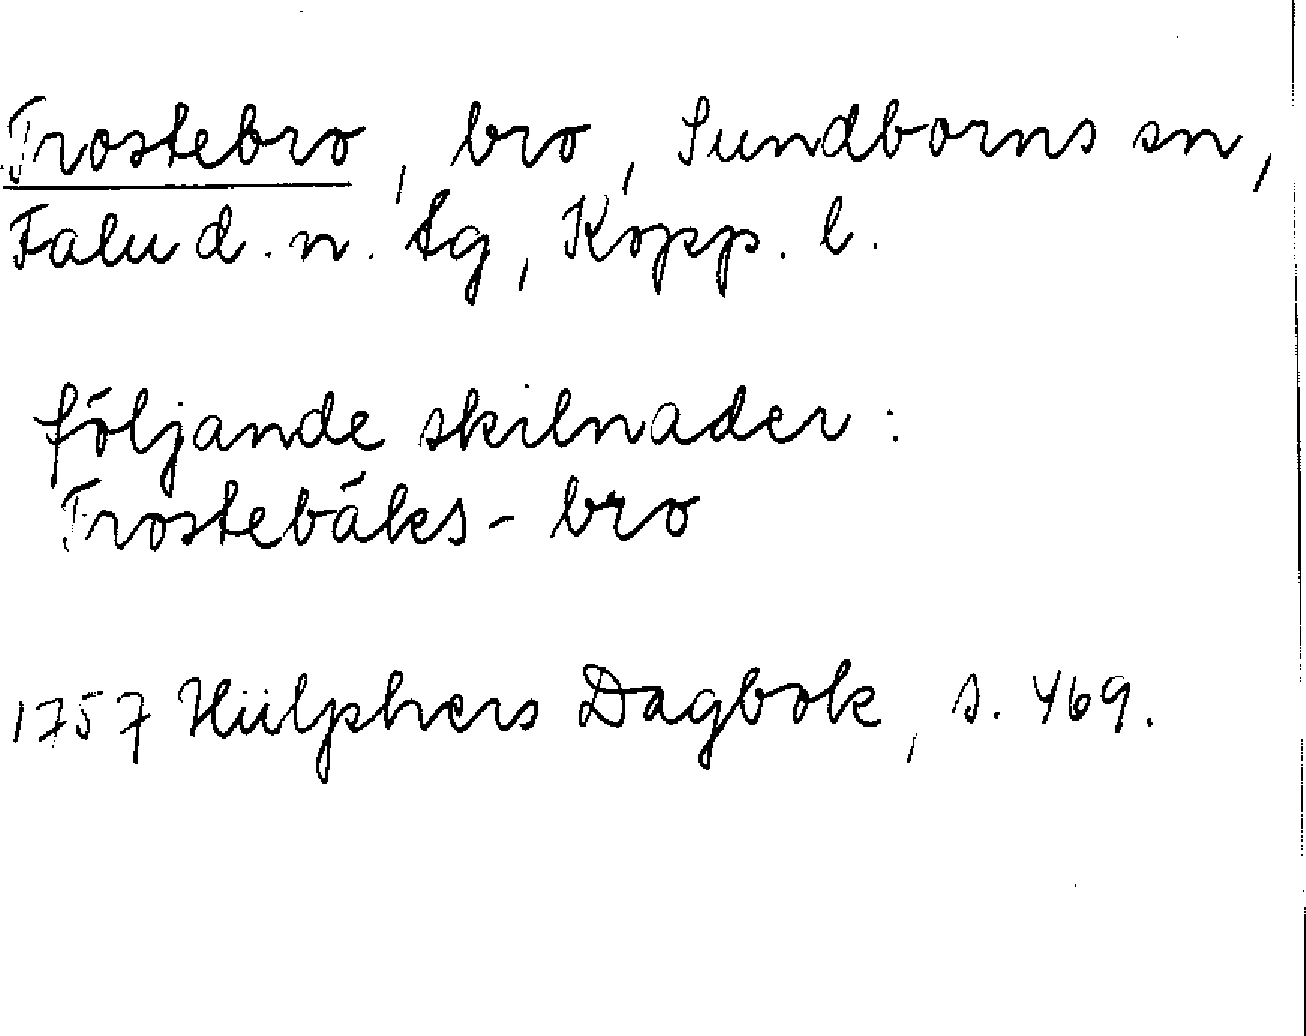 Trostebro, bro, Sundborns sn,
Falu d. n. tg, Kopp. l.
följande skilnader:
Trostebäks-bro
1757 Hülphers Dagbok, s. 469.